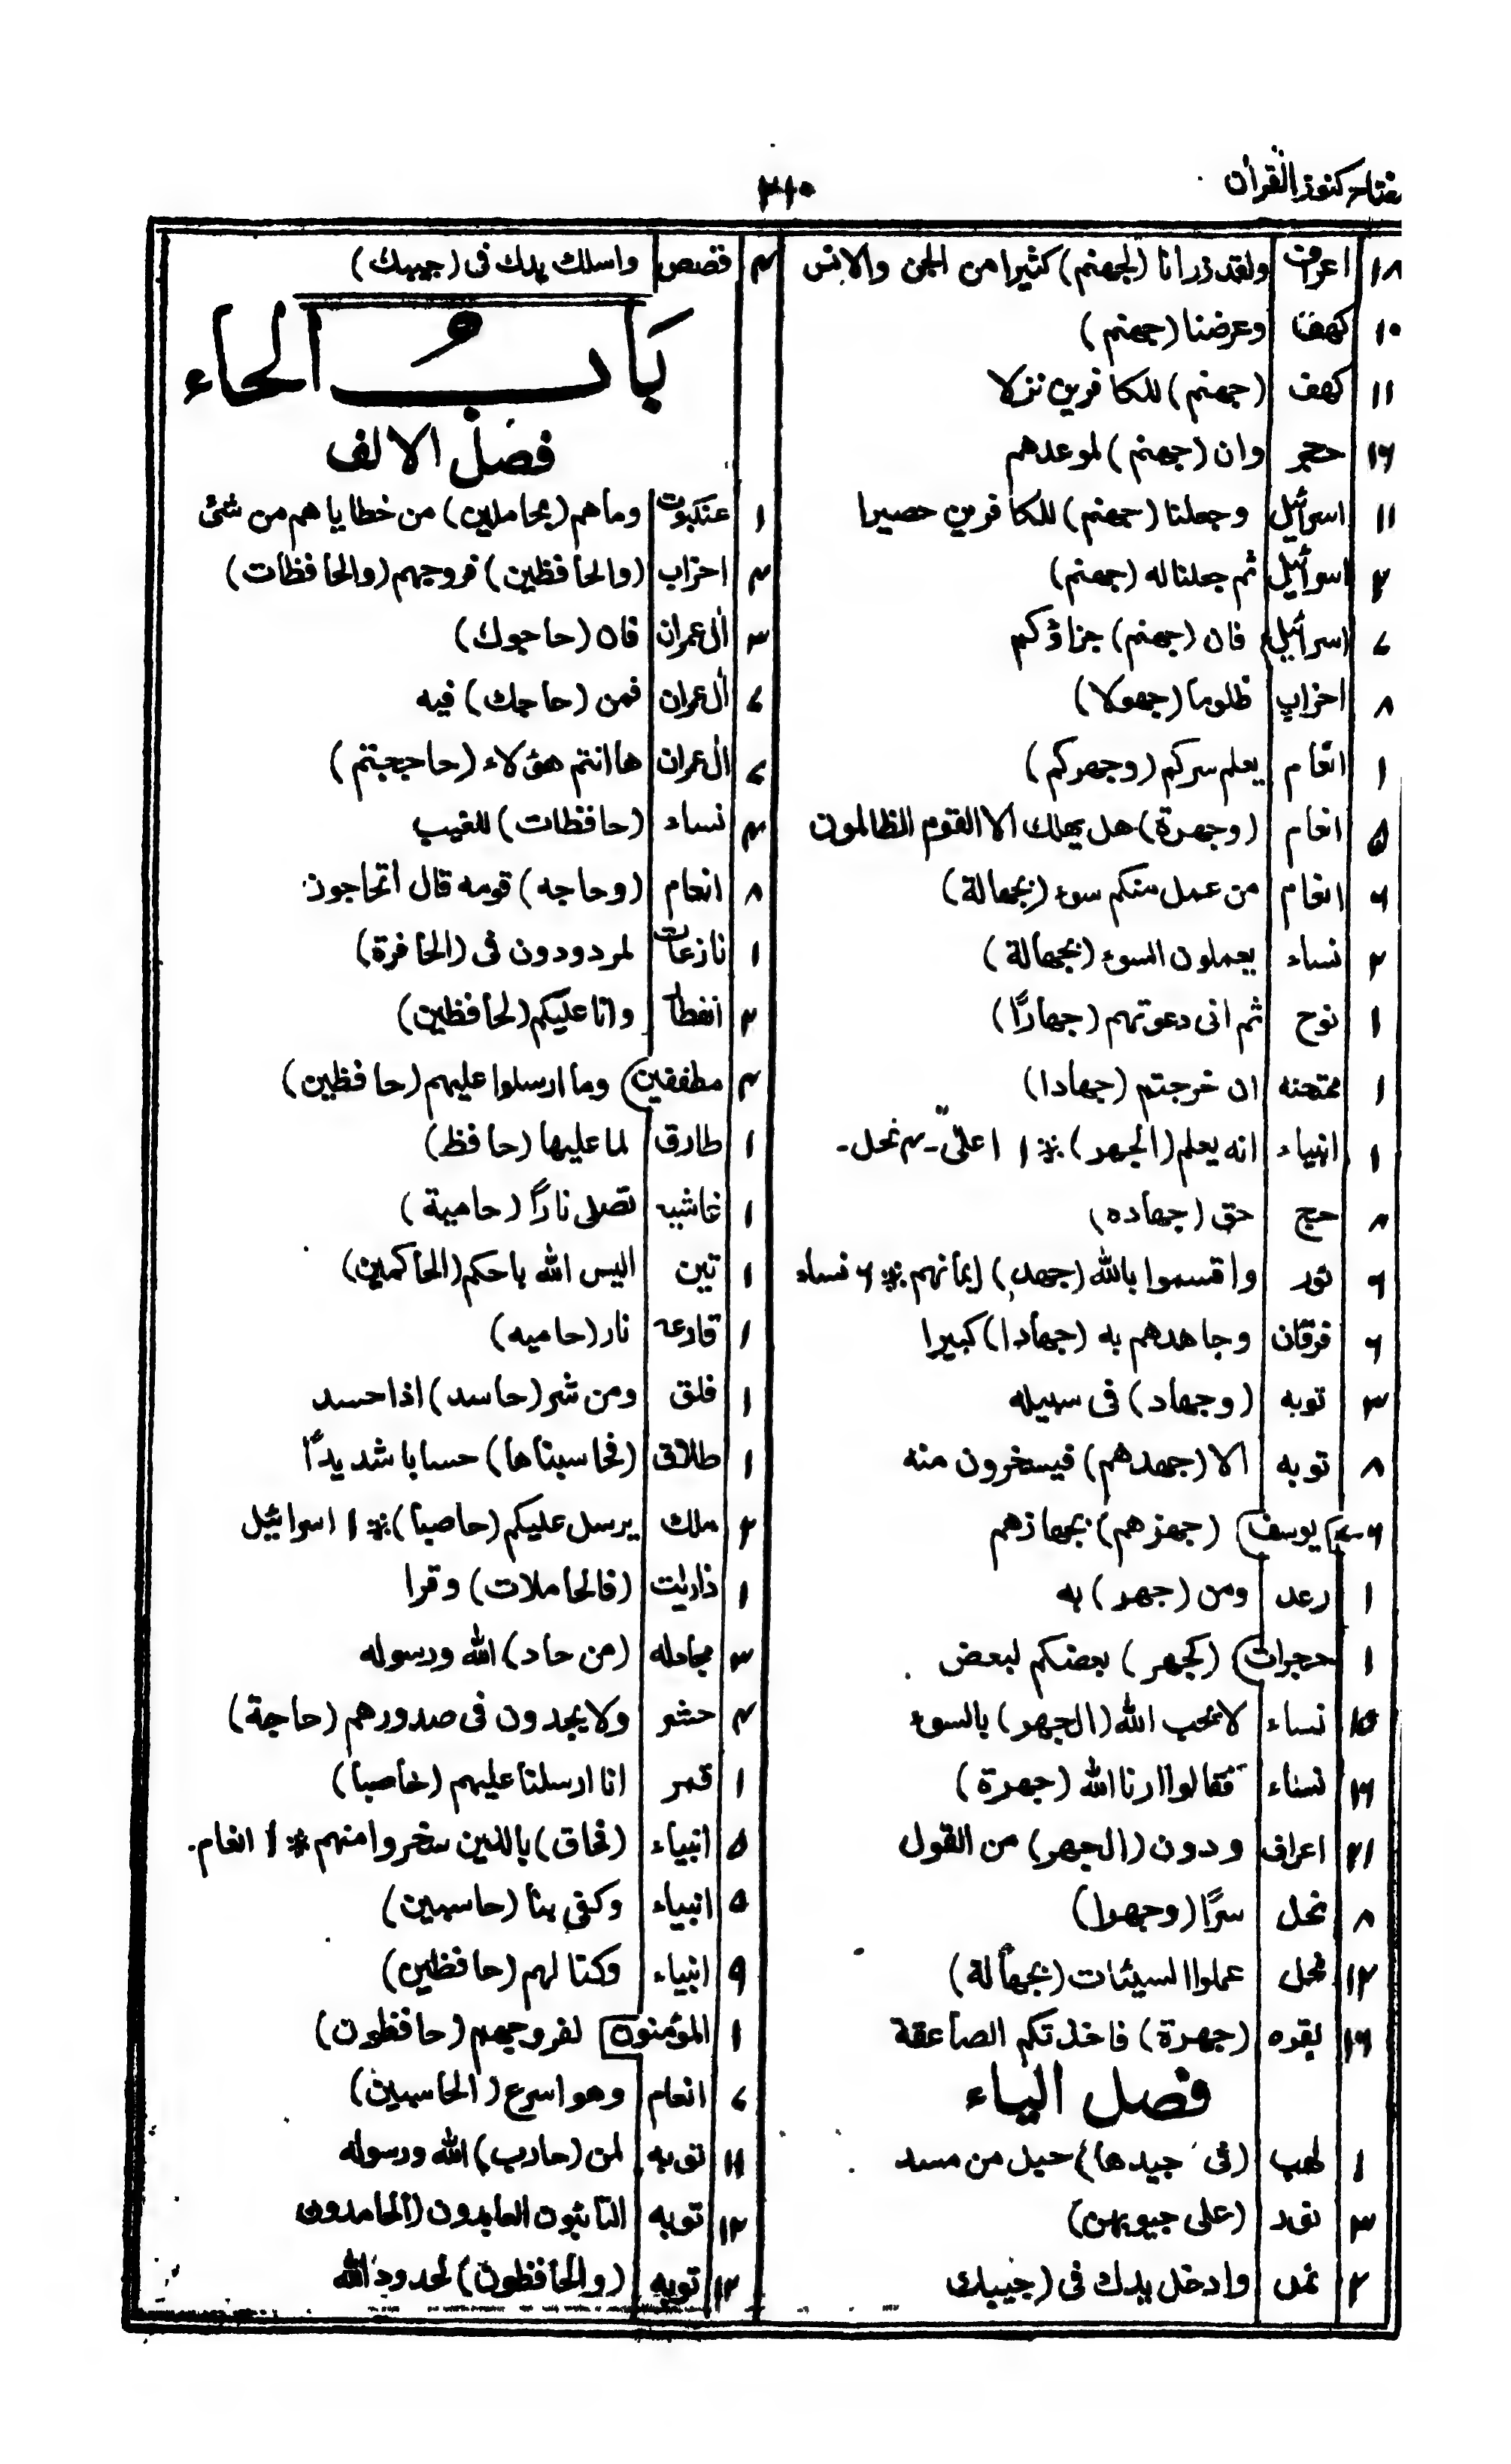 مفتاح كنوز القرأن
۲۱۰
۱۸ اعراف ولقد ذرانا (لجهنم) كثيرا من الجن والانس
۱۰ كهف وعرضنا (جهنم)
۱۱ كهف (جهنم) للكافرين نزلا
۱۶ حجر وان (جهنم) لموعدهم
۱۱ اسرائيل وجعلنا (جهنم) للكافرين حصيرا
۲ اسرائيل ثم جعلنا له (جهنم)
۷ اسرائيل فان (جهنم) جزاؤكم
۸ احزاب ظلوما (جهولا)
۱ انعام يعلم سركم (وجهركم)
۵ انعام (وجهرة) هل يهلك الا القوم الظالمون
۶ انعام من عمل منكم سوء (بجهالة)
۲ نساء يعملون السوء (بجهالة)
۱ نوح ثم انى دعوتهم (جهارًا)
۱ ممتحنه ان خرجتم (جهادا)
۱ انبياء انه يعلم (الجهر) ※ ۱ اعلىٰ۔ ۴ نحل۔
۸ حج حق (جهاده)
۶ نور واقسموا بالله (جهد) ايمانهم ※ ۶ نساء
۶ فرقان وجاهدهم به (جهادا) كبيرا
۳ توبه (وجهاد) فى سبيله
۸ توبه الا (جهدهم) فيسخرون منه
۶-۷ يوسف (جهزهم) بجهازهم
۱ رعد ومن (جهر) به
۱ حجرات (كجهر) بعضكم لبعض
۱۵ نساء لا يحب الله (الجهر) بالسوء
۱۶ نساء فقالوا ارنا الله (جهرة)
۲۱ اعراف ودون (الجهر) من القول
۸ نحل سرًا (وجهرا)
۱۲ نحل عملوا السيئات (بجهالة)
۱۶ بقره (جهرة) فاخذتكم الصاعقة
فصل الياء
۱ لهب (فى جيدها) حبل من مسد
۳ نور (على جيوبهن)
۲ نمل وادخل يدك فى (جيبك
۴ قصص واسلك يدك فى (جيبك)
بَابُ الحاء
فصل الالف
۱ عنكبوت وما هم (بحاملين) من خطاياهم من شئ
۴ احزاب (والحافظين) فروجهم (والحافظات)
۳ اٰل عمران فان (حاجوك)
۷ اٰل عمران فمن (حاجك) فيه
۷ اٰل عمران ها انتم هؤلاء (حاججتم)
۴ نساء (حافظات) للغيب
۸ انعام (وحاجه) قومه قال اتحاجون
۱ نازعات لمردودون فى (الحافرة)
۲ انفطا وانا عليكم (لحافظين)
۴ مطففين وما ارسلوا عليهم (حافظين)
۱ طارق لما عليها (حافظ)
۱ غاشيه تصلى نارًا (حامية)
۱ تين اليس الله باحكم (الحاكمين)
۱ قارعه نار (حاميه)
۱ فلق ومن شر (حاسد) اذا حسد
۱ طلاق (فحاسبناها) حسابا شديدًا
۲ ملك يرسل عليكم (حاصبا) ※ ۱ اسرائيل
۱ ذاريٰت (فالحاملات) وقرا
۳ مجادله (من حاد) الله ورسوله
۴ حشر ولا يجدون فى صدورهم (حاجة)
۱ قمر انا ارسلنا عليهم (حاصبا)
۵ انبياء (فحاق) بالذين سخروا منهم ※ ۱ انعام۔
۵ انبياء وكفى بنا (حاسبين)
۹ انبياء وكنا لهم (حافظين)
۱ المؤمنون لفروجهم (حافظون)
۷ انعام وهو اسرع (الحاسبين)
۱۱ توبه لمن (حارب) الله ورسوله
۱۲ توبه التائبون العابدون (الحامدون
۱۲ توبه (والحافظون) لحدود الله